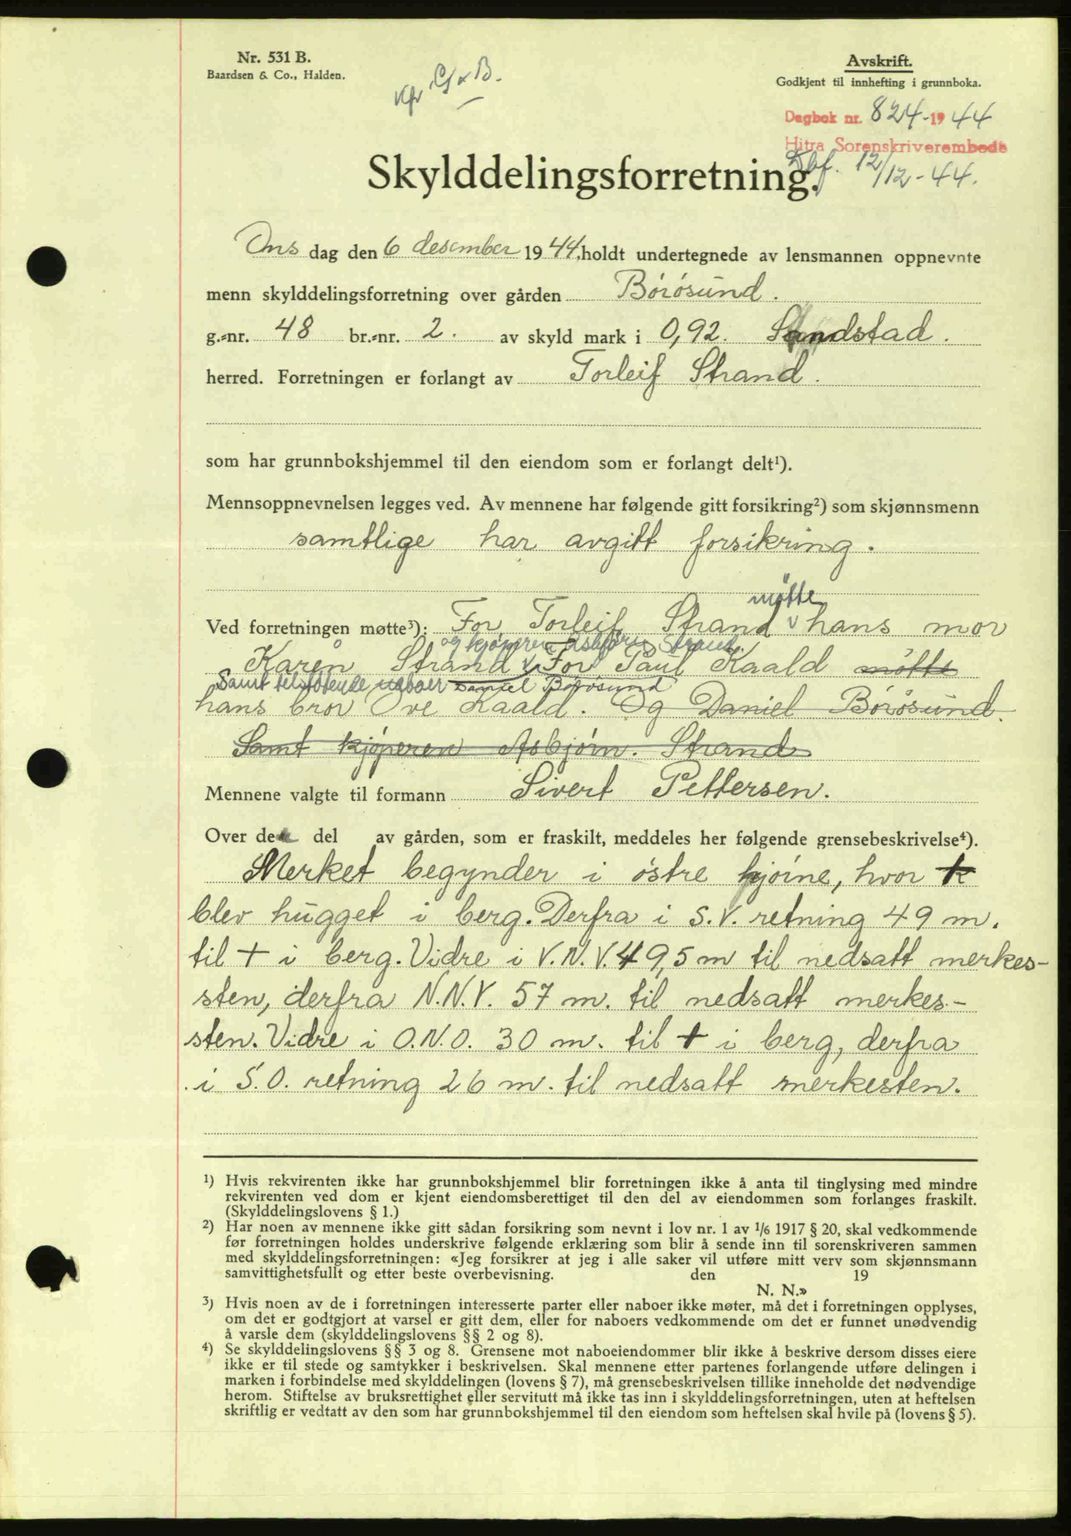 Nr. 531 B.
Baardsen & Co., Halden.
Avskrift.
Godkjent til innhefting i grunnboka.
Dagbok nr. 824-1944
Hitra Sorenskriverembede
Dbf. 12/12-44.
Skylddelingsforretning.
Ons dag den 6 desember 1944, holdt undertegnede av lensmannen oppnevnte
menn skylddelingsforretning over gården Börösund.
g.-nr. 48 br.-nr. 2. av skyld mark i 0,92. Sandstad.
herred. Forretningen er forlangt av Torleif Strand.
som har grunnbokshjemmel til den eiendom som er forlangt delt¹).
Mennsoppnevnelsen legges ved. Av mennene har følgende gitt forsikring²) som skjønnsmenn
samtlige har avgitt forsikring.
møtte
Ved forretningen møtte³): For Torleif Strand v hans mor
og kjøperen Asbjørn Strand.
Karen Strand v For Paul Kaald møtte
Samt tilstøtende naboer Daniel Börösund
hans bror Ove Kaald. Og Daniel Börösund.
Samt kjøperen Asbjørn. Strand
Mennene valgte til formann Sivert Pettersen.
Over de del av gården, som er fraskilt, meddeles her følgende grensebeskrivelse⁴).
Merket begynder i östre hjörne, hvor +
blev hugget i berg. Derfra i S.V. retning 49 m.
til + i berg. Vidre i V.N.V. 49,5 m til nedsatt merkes-
sten, derfra N.N.V. 57 m. til nedsatt merkes-
sten. Vidre i O.N.O. 30 m. til + i berg, derfra
i S.O. retning 26 m. til nedsatt merkesten.
¹) Hvis rekvirenten ikke har grunnbokshjemmel blir forretningen ikke å anta til tinglysing med mindre
rekvirenten ved dom er kjent eiendomsberettiget til den del av eiendommen som forlanges fraskilt.
(Skylddelingslovens § 1.)
²) Har noen av mennene ikke gitt sådan forsikring som nevnt i lov nr. 1 av 1/6 1917 § 20, skal vedkommende
før forretningen holdes underskrive følgende erklæring som blir å sende inn til sorenskriveren sammen
med skylddelingsforretningen: «Jeg forsikrer at jeg i alle saker vil utføre mitt verv som skjønnsmann
samvittighetsfullt og etter beste overbevisning. den 19
N. N.»
³) Hvis noen av de i forretningen interesserte parter eller naboer ikke møter, må det i forretningen opplyses,
om det er godtgjort at varsel er gitt dem, eller for naboers vedkommende om det er funnet unødvendig
å varsle dem (skylddelingslovens §§ 2 og 8).
⁴) Se skylddelingslovens §§ 3 og 8. Grensene mot naboeiendommer blir ikke å beskrive dersom disses eiere
ikke er til stede og samtykker i beskrivelsen. Skal mennene etter partenes forlangende utføre delingen i
marken i forbindelse med skylddelingen (lovens § 7), må grensebeskrivelsen tillike inneholde det nødvendige
herom. Stiftelse av bruksrettighet eller servitutt må ikke tas inn i skylddelingsforretningen, uten at heftelsen
skriftlig er vedtatt av den som har grunnbokshjemmel til den eiendom som heftelsen skal hvile på (lovens § 5).